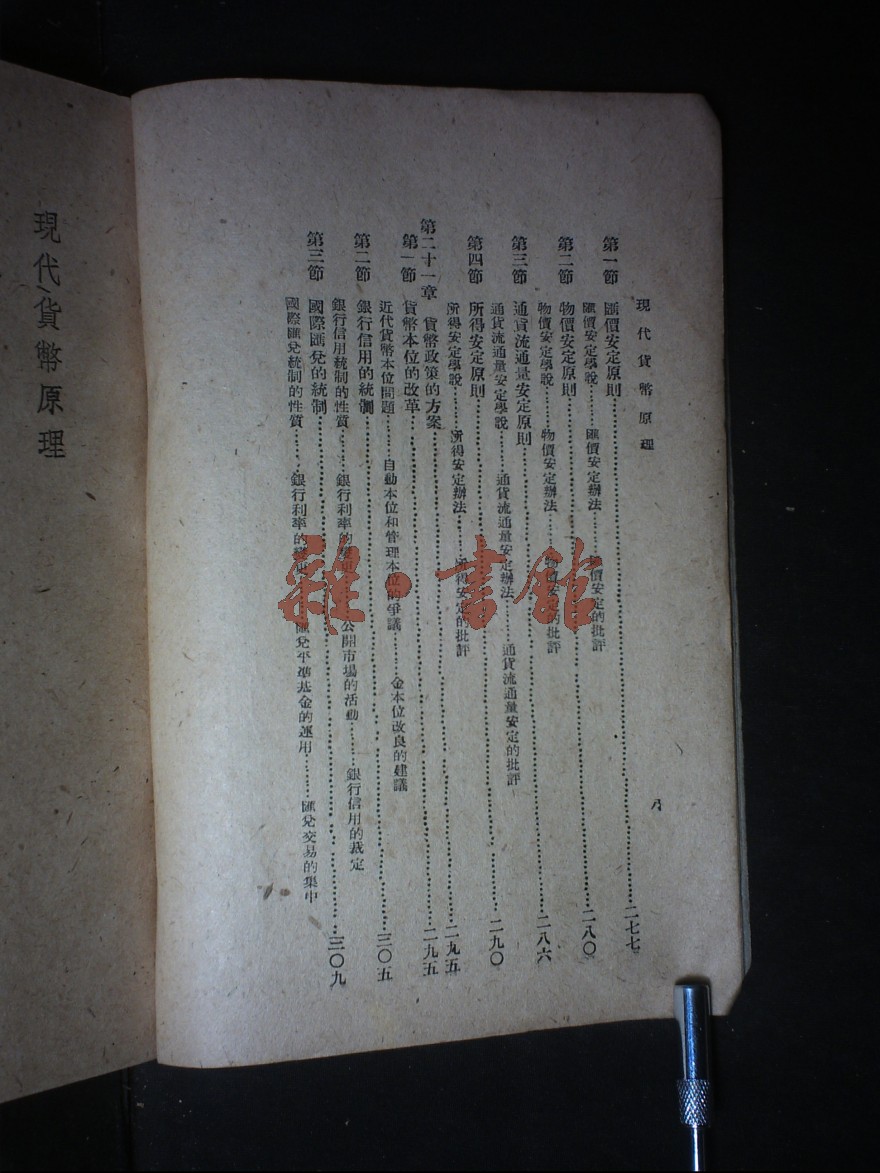 現代貨幣原理
八
第一節 匯價安定原則……二七七
匯價安定學說……匯價安定辦法……匯價安定的批評
第二節 物價安定原則……二八〇
物價安定學說……物價安定辦法……物價安定的批評
第三節 通貨流通量安定原則……二八六
通貨流通量安定學說……通貨流通量安定辦法……通貨流通量安定的批評
第四節 所得安定原則……二九〇
所得安定學說……所得安定辦法……所得安定的批評
第二十一章 貨幣政策的方案……二九五
第一節 貨幣本位的改革……二九五
近代貨幣本位問題……自動本位和管理本位的爭議……金本位改良的建議
第二節 銀行信用的統制……三〇五
銀行信用統制的性質……銀行利率的變更……公開市場的活動……銀行信用的裁定
第三節 國際匯兌的統制……三〇九
國際匯兌統制的性質……銀行利率的變更……匯兌平準基金的運用……匯兌交易的集中
現代貨幣原理
雜·書館